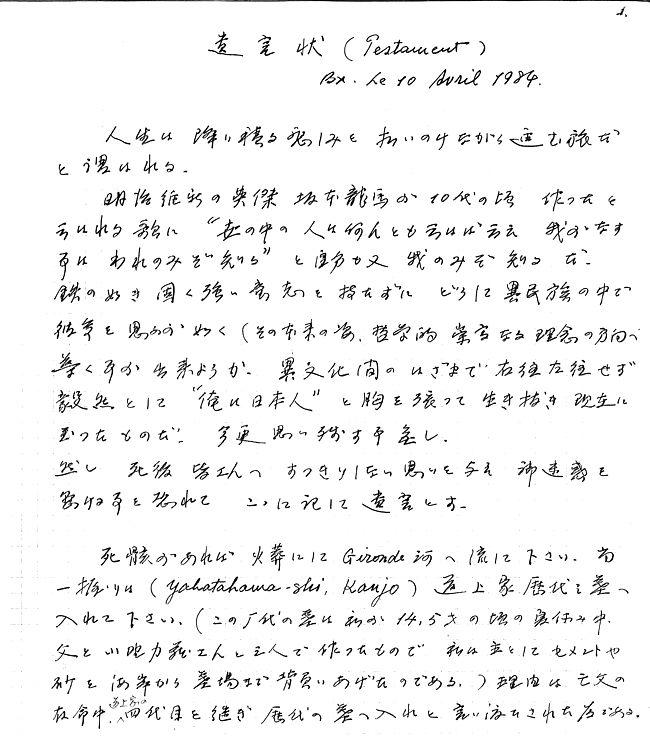 1.
遺言状 (Testament)
Bx. Le 10 Avril 1984.
人生は 降り積る悲しみを 払いのけながら進む旅だ
と謂はれる.
明治維新の英傑 坂本龍馬が 10代の頃 作ったと
云はれる歌に "世の中の 人は何んとも云はば云え 我がなす
事は われのみぞ知る" と 自分も又 我のみぞ知る だ.
鉄の如き 固く強い意志を持たずに どうして異民族の中で
彼等を思うが如く (その本来の姿, 哲学的 崇高なる理念の方向へ
導く事が出来ようか. 異文化間のはざまで 右往左往せず
毅然として "俺は日本人" と胸を張って 生き抜き 現在に
至ったものだ. 今更思い残す事無し.
然し 死後 皆さんへ すっきりしない思いを与え 御迷惑を
掛ける事を恐れて ここに記して 遺言とす.
死骸があれば 火葬にして Gironde河へ流して下さい. 尚
一握りは (Yahatahama-shi, Kanjo) 道上家歴代之墓へ
入れて下さい. (この 代の墓は私が 14,5才の頃の夏休み中.
父と 地力蔵さんと三人で作ったもので 私は主としてセメントや
砂を海岸から墓場まで背負いあげたのである.) 理由は亡父の
存命中 道上家の 四代目を継ぎ 歴代の墓へ入れと言い渡された為である.